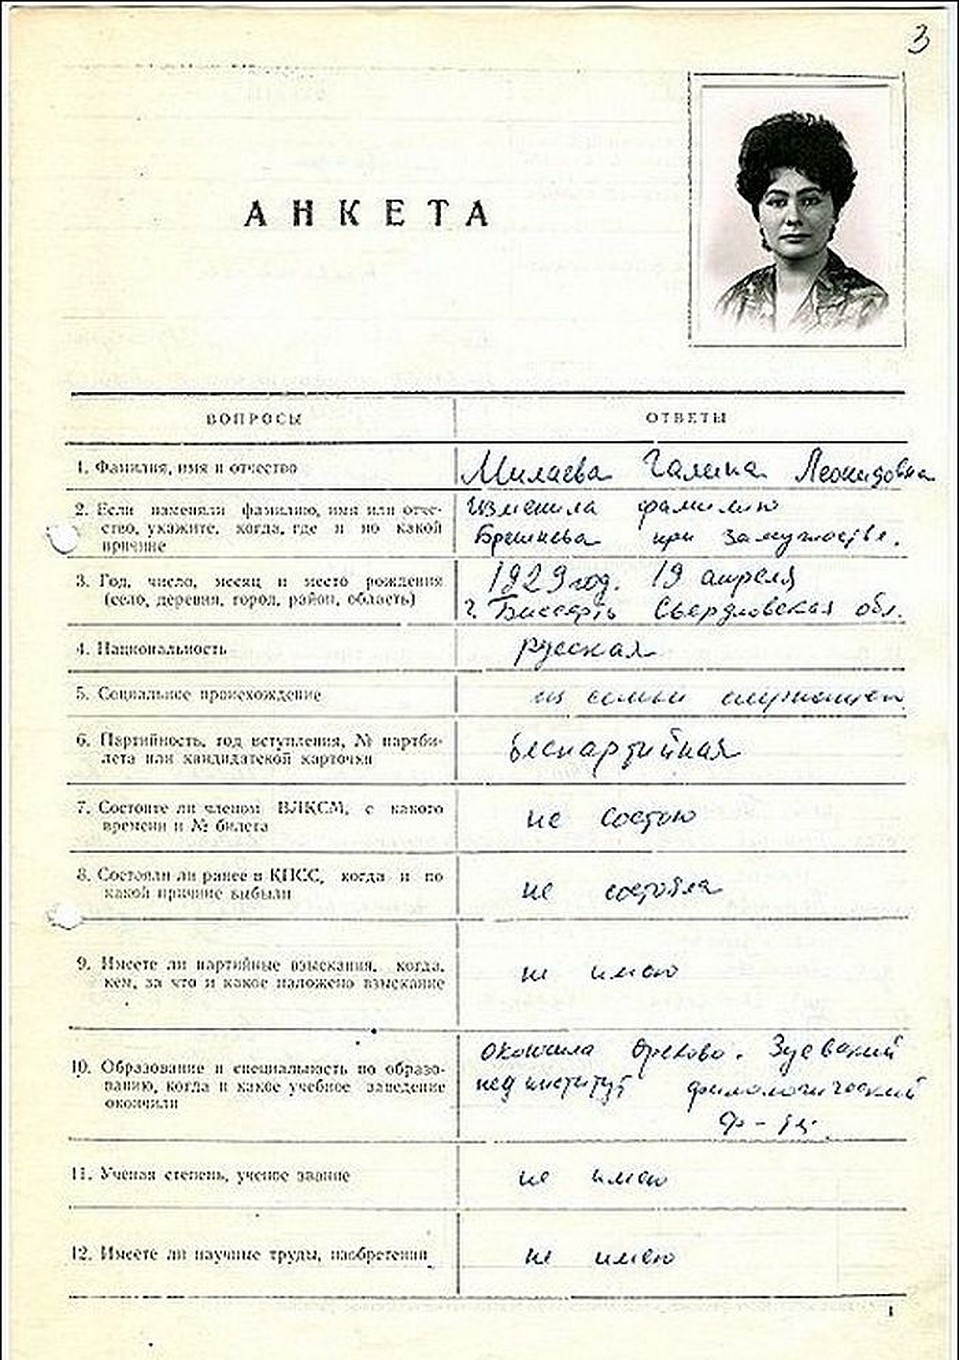 3
АНКЕТА
ВОПРОСЫ
ОТВЕТЫ
1. Фамилия, имя и отчество
Милаева Галина Леонидовна
2. Если изменяли фамилию, имя или отче-
ство, укажите, когда, где и по какой
причине
Изменила фамилию
Брежнева при замужестве.
3. Год, число, месяц и место рождения
(село, деревня, город, район, область)
1929 год. 19 апреля
г. Биссерть Свердловская обл.
4. Национальность
русская
5. Социальное происхождение
из семьи служащего
6. Партийность, год вступления, № партби-
лета или кандидатской карточки
беспартийная
7. Состоите ли членом ВЛКСМ, с какого
времени и № билета
не состою
8. Состояли ли ранее в КПСС, когда и по
какой причине выбыли
не состояла
9. Имеете ли партийные взыскания, когда,
кем, за что и какое наложено взыскание
не имею
10. Образование и специальность по образо-
ванию, когда и какое учебное заведение
окончили
окончила Орехово-Зуевский
пединститут филологический
ф-т.
11. Ученая степень, ученое звание
не имею
12. Имеете ли научные труды, изобретения
не имею
1